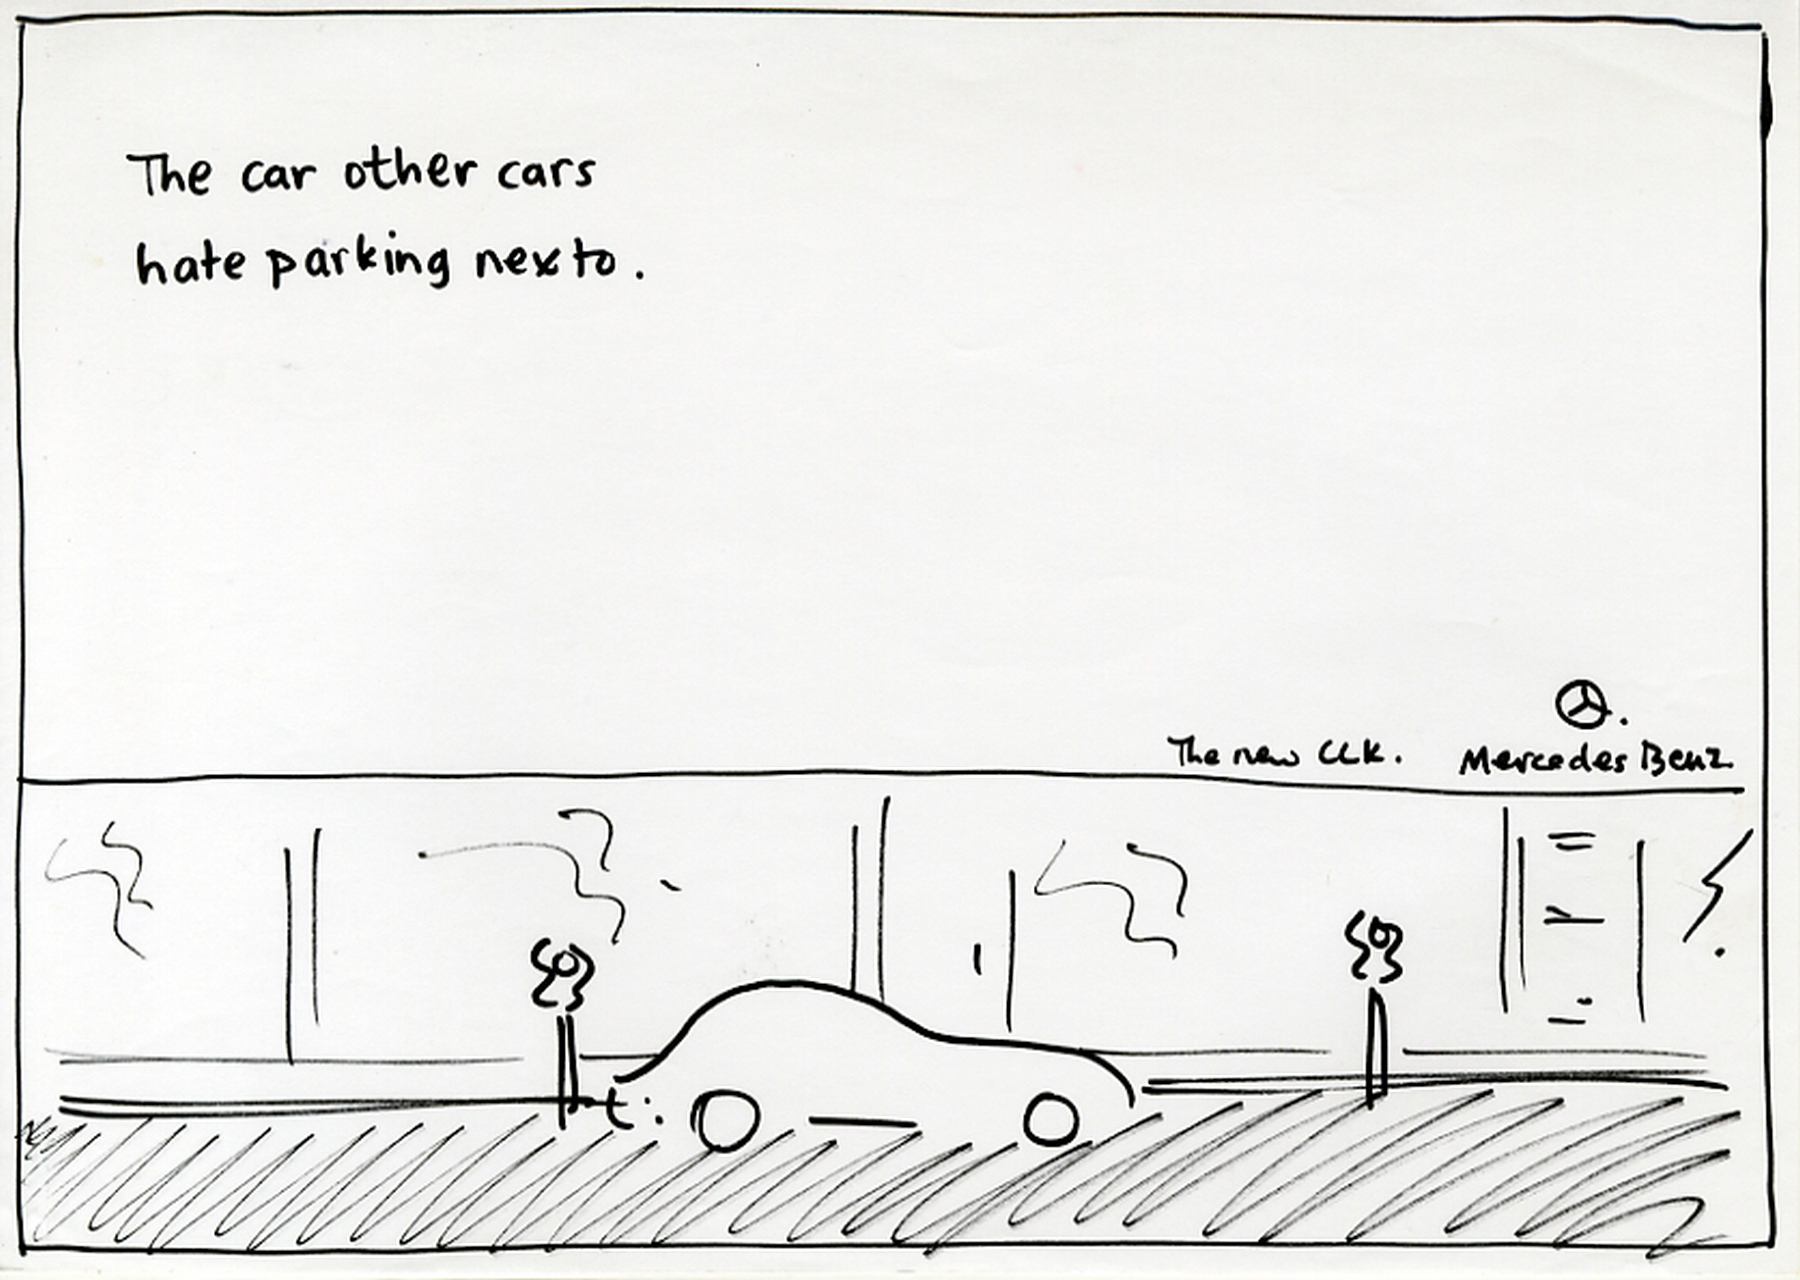 The car other cars
hate parking nexto.
The new CLK.
Mercedes Benz